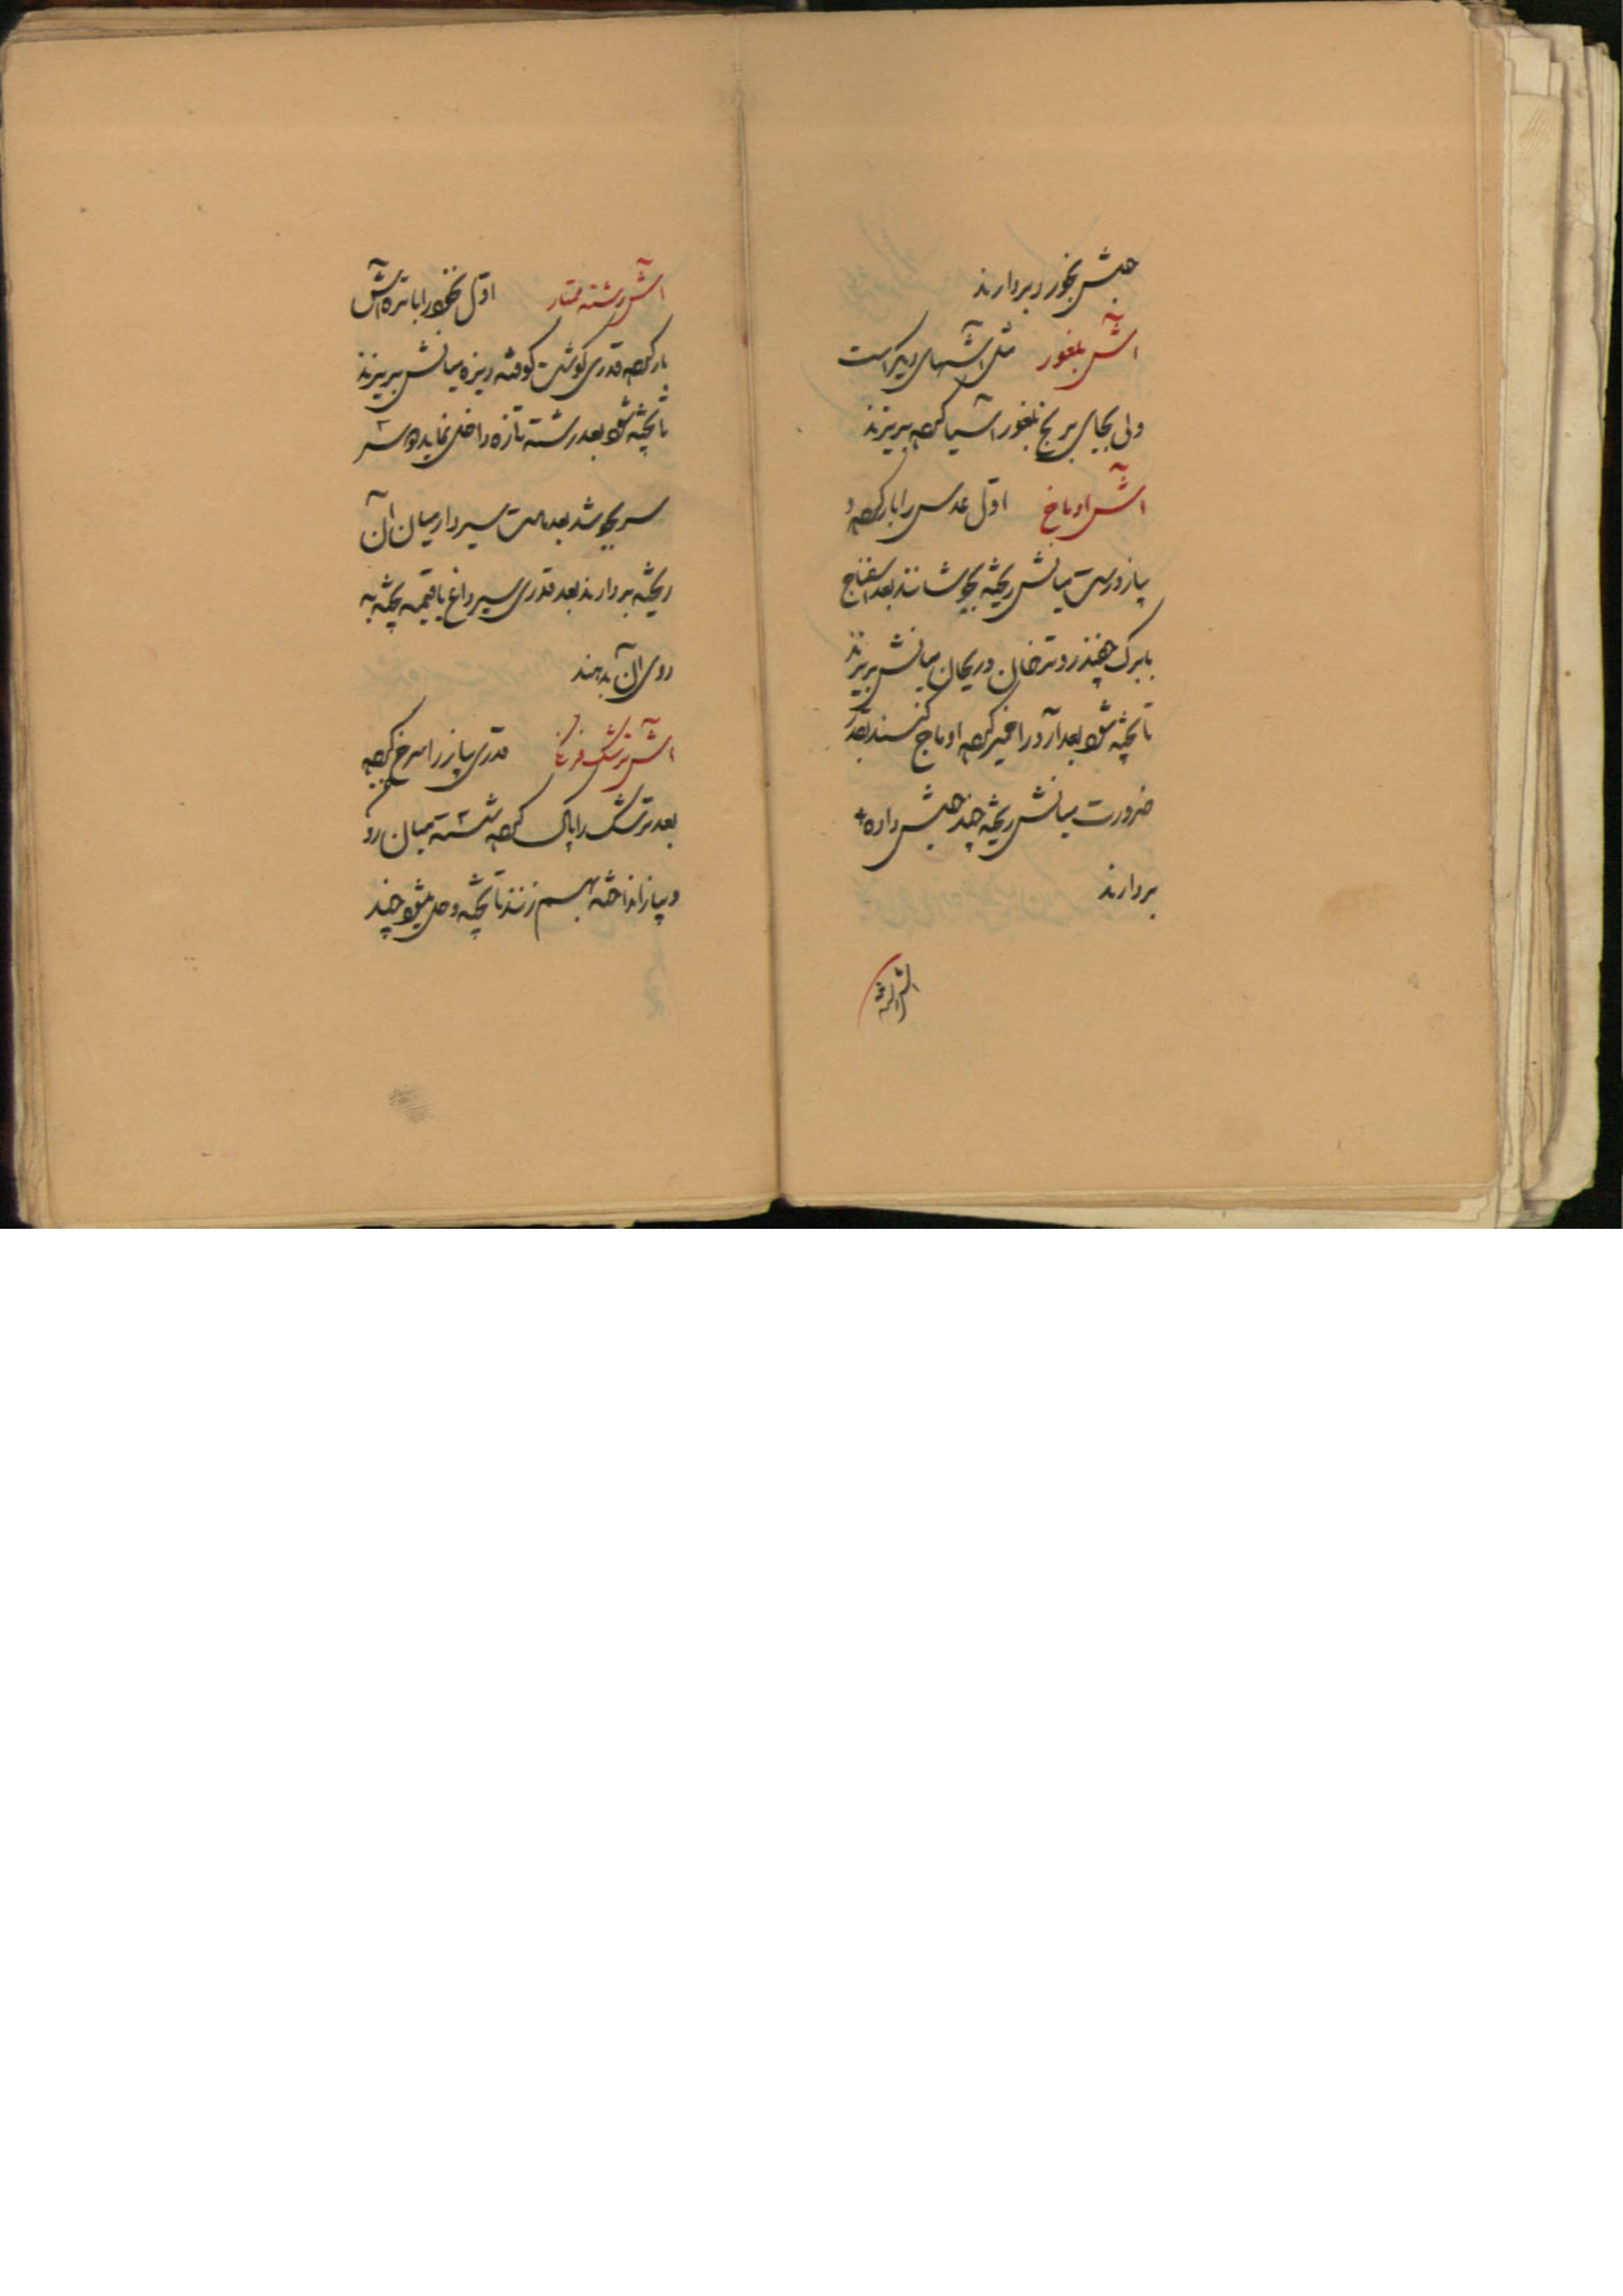 جوش بخورد بردارند
آش بلغور مثل آشهای دیگر است
ولی بجای برنج بلغور آسیا کرده بریزند
آش اوماج اول عدس را بار کرده و
پیاز درست میانش ریخته بجوشانند بعد اسفناج
با برک چغندر و ترخان و ریحان میانش بریزند
تا پخته شود بعد آرد را خمیر کرده اوماج کنند بقدر
ضرورت میانش ریخته چند جوش داده
بردارند
آش رشته
آش رشته اول نخود را با تره آش
بار کرده قدری کوشت کوفته ریزه میانش بریزند
تا پخته شود بعد رشته تازه داخل نمایند دو سه
سر بجوشد بعد ماست سیردار میان آن
ریخته بردارند بعد قدری سیر داغ یا قیمه پخته به
روی آن بدهند
آش زرشک قدری پیاز را سرخ کرده
بعد زرشک را پاک کرده شسته میان رو
و پیاز انداخته بهم زنند تا پخته و حل شود چند